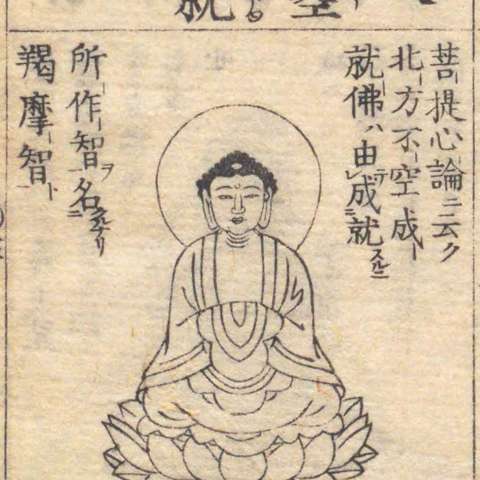 菩提心論ニ云ク
北方不空成
就佛ハ由成就スルニ
所作智ヲ名クルナリ
羯摩智ト